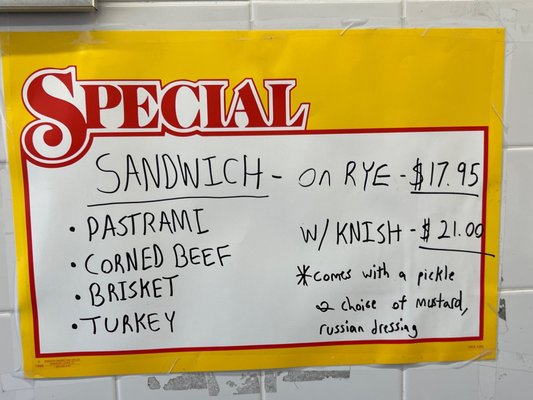 SPECIAL
SANDWICH - on RYE - $17.95
• PASTRAMI
W/ KNISH - $21.00
• CORNED BEEF
• BRISKET
• TURKEY
*comes with a pickle
& choice of mustard,
russian dressing